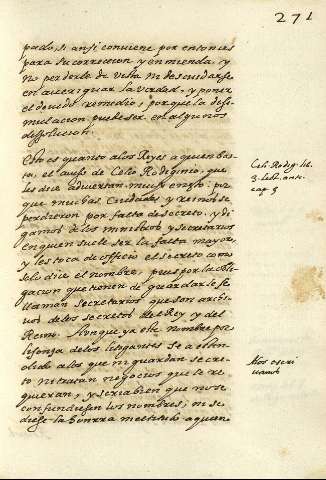 271
pado, si ansi conviene por entonces
para su correccion y enmienda. y
no perderle de vista ni descuidarse
en averiguar la verdad. y poner
el devido remedio; porque la desi-
mulacion puede ser en algunos
dissolucion.
Esto es quanto a los Reyes a quien bas-
ta, el aviso de Celio Rodigino, que
les dice adviertan mucho en esto: por
que muchas Ciudades y reinos se
perdieron por falta de secreto. y di-
gamos de los ministros y secretarios
en quien suele ser la falta mayor,
y les toca de officio el secreto como
se lo dice el nombre, pues por la obli-
gacion que tienen de guardarle se
llaman secretarios que son archi-
vos de los secretos del Rey y del
Reino. Aunque ya este nombre por
lisonja de los litigantes se a estendido
a los que ni guardan secre-
to ni tratan negocios que le re-
quieran, y seria bien que no se
confundiesen los nombres; ni se
diese la honrra
Celi. Rodig. lib.
cap. 3